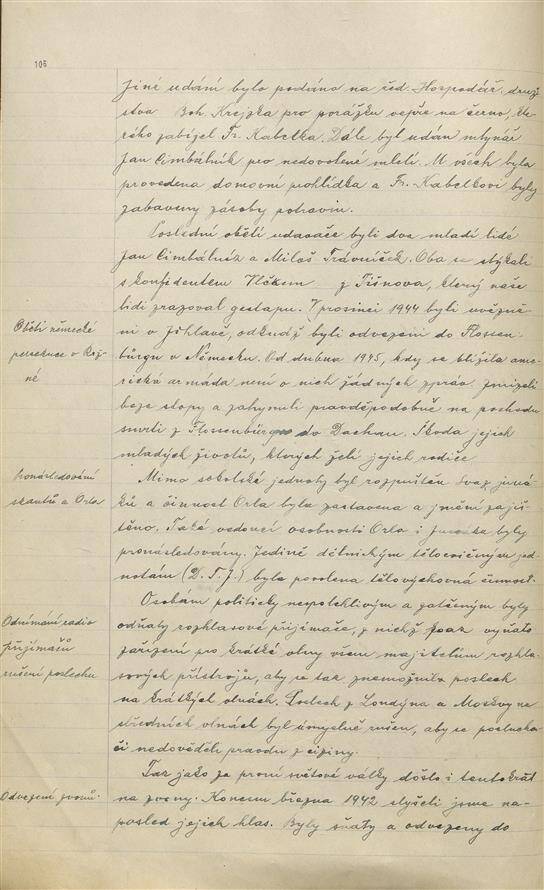 106
Jiné udání bylo podáno na řed. Hospodář. druž
stva Boh. Krejzka pro porážku vepře na černo, kte
rého zabíjel Fr. Kabelka. Dále byl udán mlynář
Jan Cimbálník pro nedovolené mletí. U všech byla
provedena domovní prohlídka a Fr. Kabelkovi byly
zabaveny zásoby potravin.
Poslední obětí udavače byli dva mladí lidé
Jan Cimbálník a Miloš Trávníček. Oba se stýkali
s konfidentem Vlčkem z Tišnova, který naše
lidi zrazoval gestapu. V prosinci 1944 byli uvězně
ni v Jihlavě, odkudž byli odvezeni do Flossen
bürgu v Německu. Od dubna 1945, kdy se blížila ame
rická armáda není o nich žádných zpráv. Zmizeli
beze stopy a zahynuli pravděpodobně na pochodu
smrti z Flossenbürgu do Dachau. Škoda jejich
mladých životů, kterých želí jejich rodiče
Oběti německé
persekuce v
né
Mimo sokolské jednoty byl rozpuštěn svaz juná
ků a činnost Orla byla zastavena a jmění zajiš
těno. Také vedoucí osobnosti Orla i Junáka byly
pronásledovány. Jedině dělnickým tělocvičným jed
notám (D. T. J.) byla povolena tělovýchovná činnost.
Pronásledování
skautů a Orla
Osobám politicky nespolehlivým a zatčeným byly
odňaty rozhlasové přijímače, z nichž vyňato
zařízení pro krátké vlny všem majitelům rozhla
sových přístrojů, aby se tak znemožnil poslech
na krátkých vlnách. Poslech z Londýna a Moskvy na
středních vlnách byl úmyslně rušen, aby se poslucha
či nedověděli pravdu z ciziny.
Odnímání radio
přijímačů
rušení poslechu
Tak jako za první světové války došlo i tentokrát
na zvony. Koncem března 1942 slyšeli jsme na-
posled jejich hlas. Byly sňaty a odvezeny do
Odvezení zvonů.